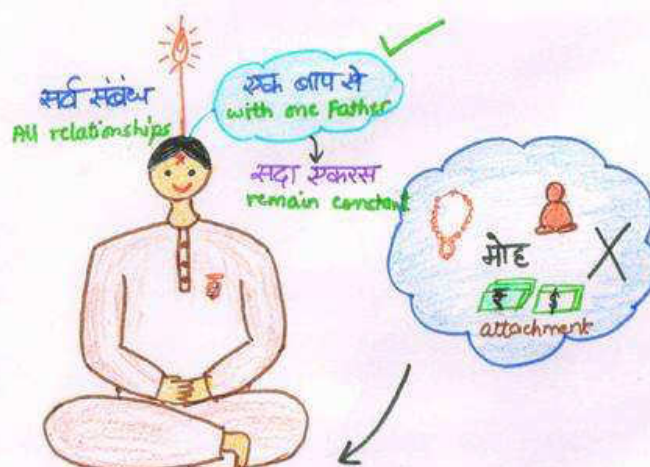 सर्व संबंध
All relationships
एक बाप से
with one Father
सदा एकरस
remain constant
मोह
₹ $
attachment